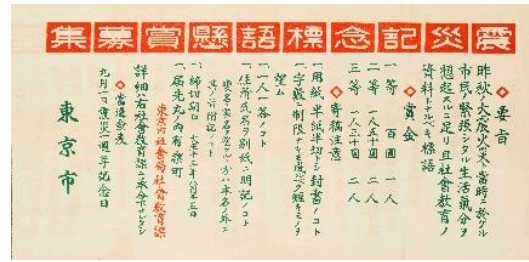 震災記念標語懸賞募集
◇要旨
昨秋ノ大震火災ト當時ニ於ケル
市民ノ緊張シタル生活氣分ヲ
想起スルニ足リ且社會教育ノ
資料トナルベキ標語
◇賞金
一等 百圓 一人
二等 一人五十圓 二人
三等 一人三十圓 二人
◇寄稿注意
一、用紙ハ半紙半切トシ封書ノコト
一、字數ニ制限ナキモ成ルベク短キモノヲ
望ム
一、一人一答ノコト
一、住所氏名ヲ別紙ニ明記ノコト
一、締切期日 大正十三年八月十五日
一、屆先丸ノ内有樂町
東京市社會局社會教育課
詳細ハ右社會教育課ニ承合ハサレタシ
◇當選發表
九月一日震災一週年記念日
東京市